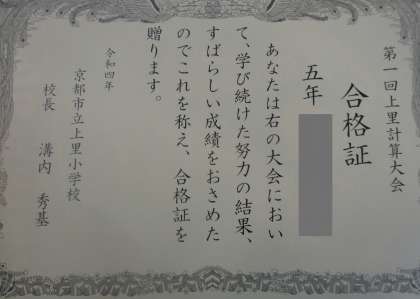 第一回上里計算大会
合格証
五年
あなたは右の大会におい
て、学び続けた努力の結果、
すばらしい成績をおさめた
のでこれを称え、合格証を
贈ります。
令和四年
京都市立上里小学校
校長　溝内　秀基